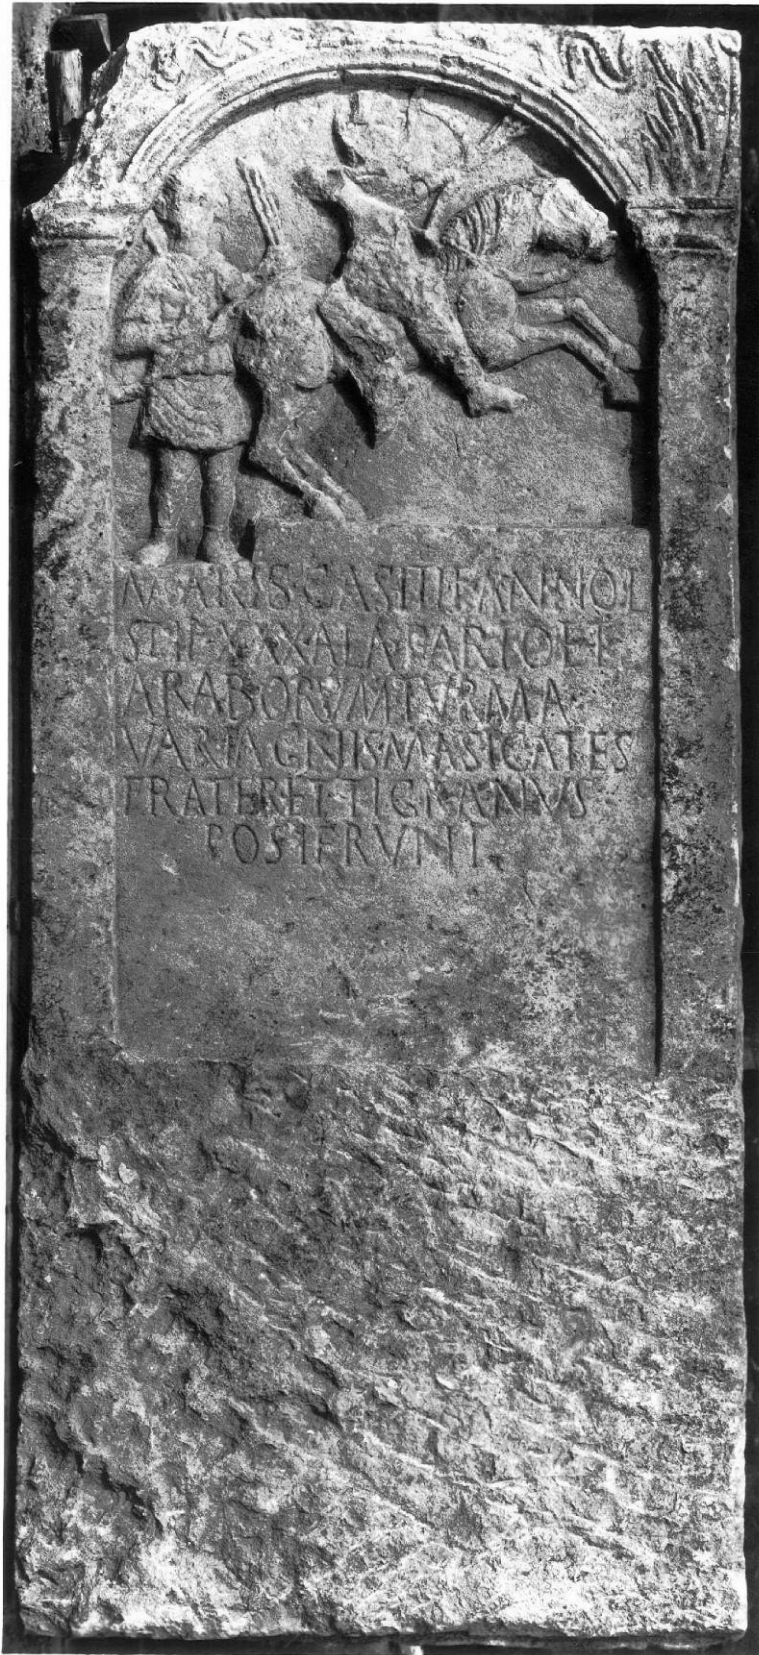 MARIS·CASITI·F·ANN·VOL
STIP·XXX·ALA·PART·ET
ARABORVM·TVRMA
VARIAGNIS·MASICATES
FRATER·ET·TIGRANVS
POSIERVNT